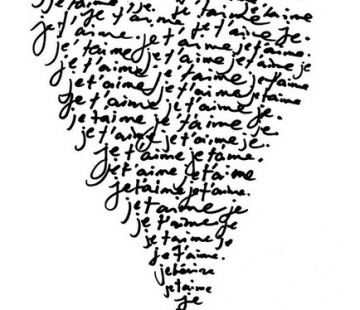 je t'aime, je. je t'aime
je t'aime je t'aime je t'aime
je t'aime. je t'aime je.
je t'aime je t'aime je t'aime.
je t'aime je t'aime je t'aime je
je t'aime je t'aime je t'aime
je t'aime je t'aime je t'aime
je t'aime je t'aime je.
je t'aime je t'aime je
je t'aime je t'aime je.
je t'aime je t'aime.
je t'aime je t'aime
je t'aime je t'aime.
je t'aime je
je t'aime je
je t'aime je
je t'aime.
je t'aime
je